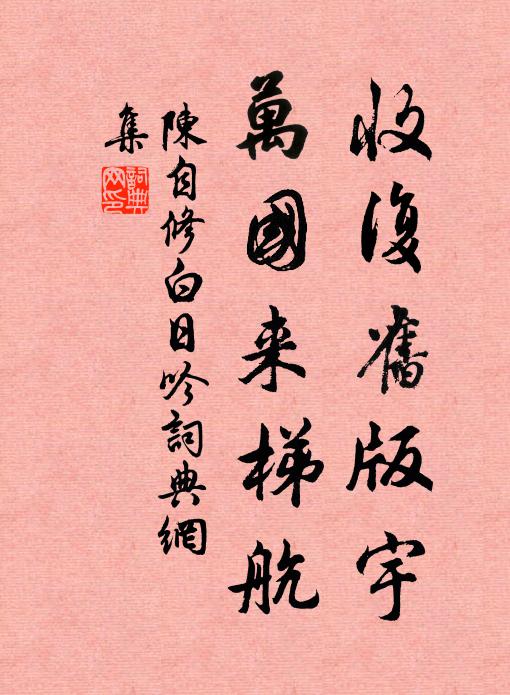 收復舊版宇
萬國来梯航
陳自修白日吟詞典網
集
詞典
网印